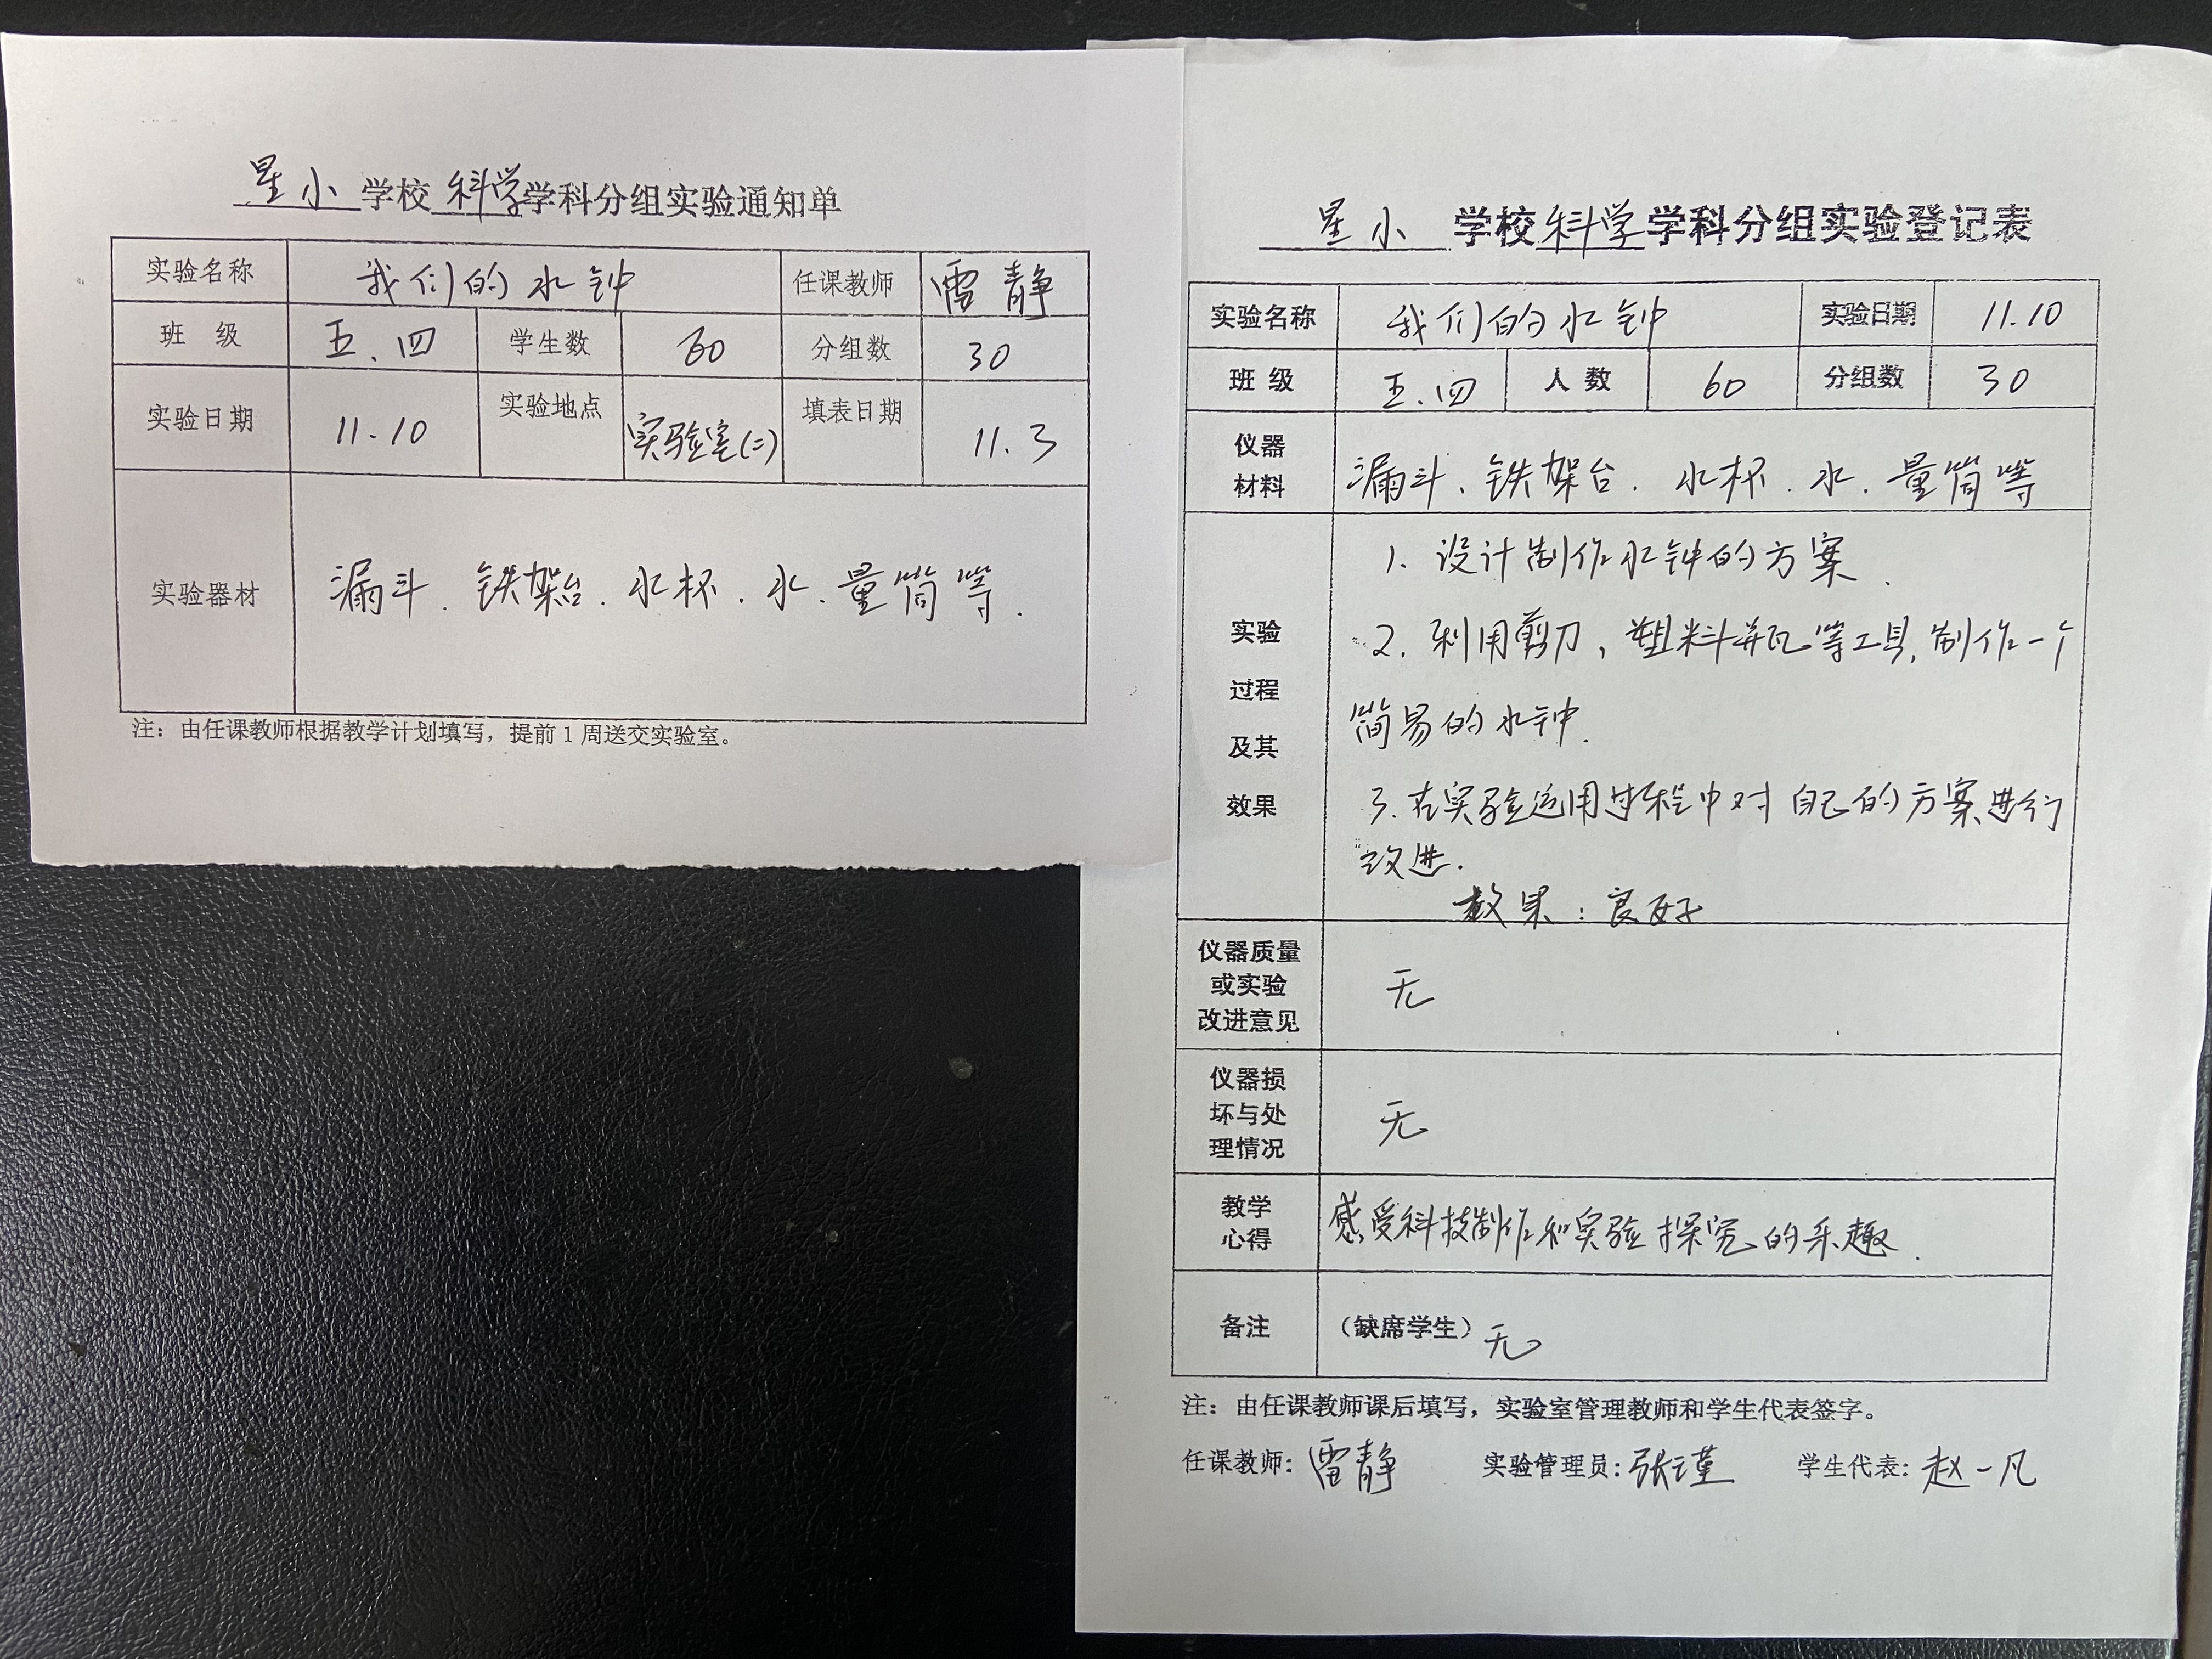 星小学校科学学科分组实验通知单
实验名称 我们的水钟 任课教师 雷静
班 级 五.四 学生数 60 分组数 30
实验日期 11.10 实验地点 实验室(二) 填表日期 11.3
实验器材 漏斗.铁架台.水杯.水.量筒等.
注：由任课教师根据教学计划填写，提前1周送交实验室。
星小学校科学学科分组实验登记表
实验名称 我们的水钟 实验日期 11.10
班 级 五.四 人 数 60 分组数 30
仪器
材料
漏斗、铁架台.水杯.水.量筒等
实验
过程
及其
效果
1.设计制作水钟的方案.
2.利用剪刀，塑料瓶等工具,制作一个
简易的水钟.
3.在实验运用过程中对自己的方案进行
改进.
效果：良好
仪器质量
或实验
改进意见
无
仪器损
坏与处
理情况
无
教学
心得
感受科技制作和实验探究的乐趣.
备注 （缺席学生）无
注：由任课教师课后填写，实验室管理教师和学生代表签字。
任课教师：雷静 实验管理员：张瑾 学生代表：赵一凡